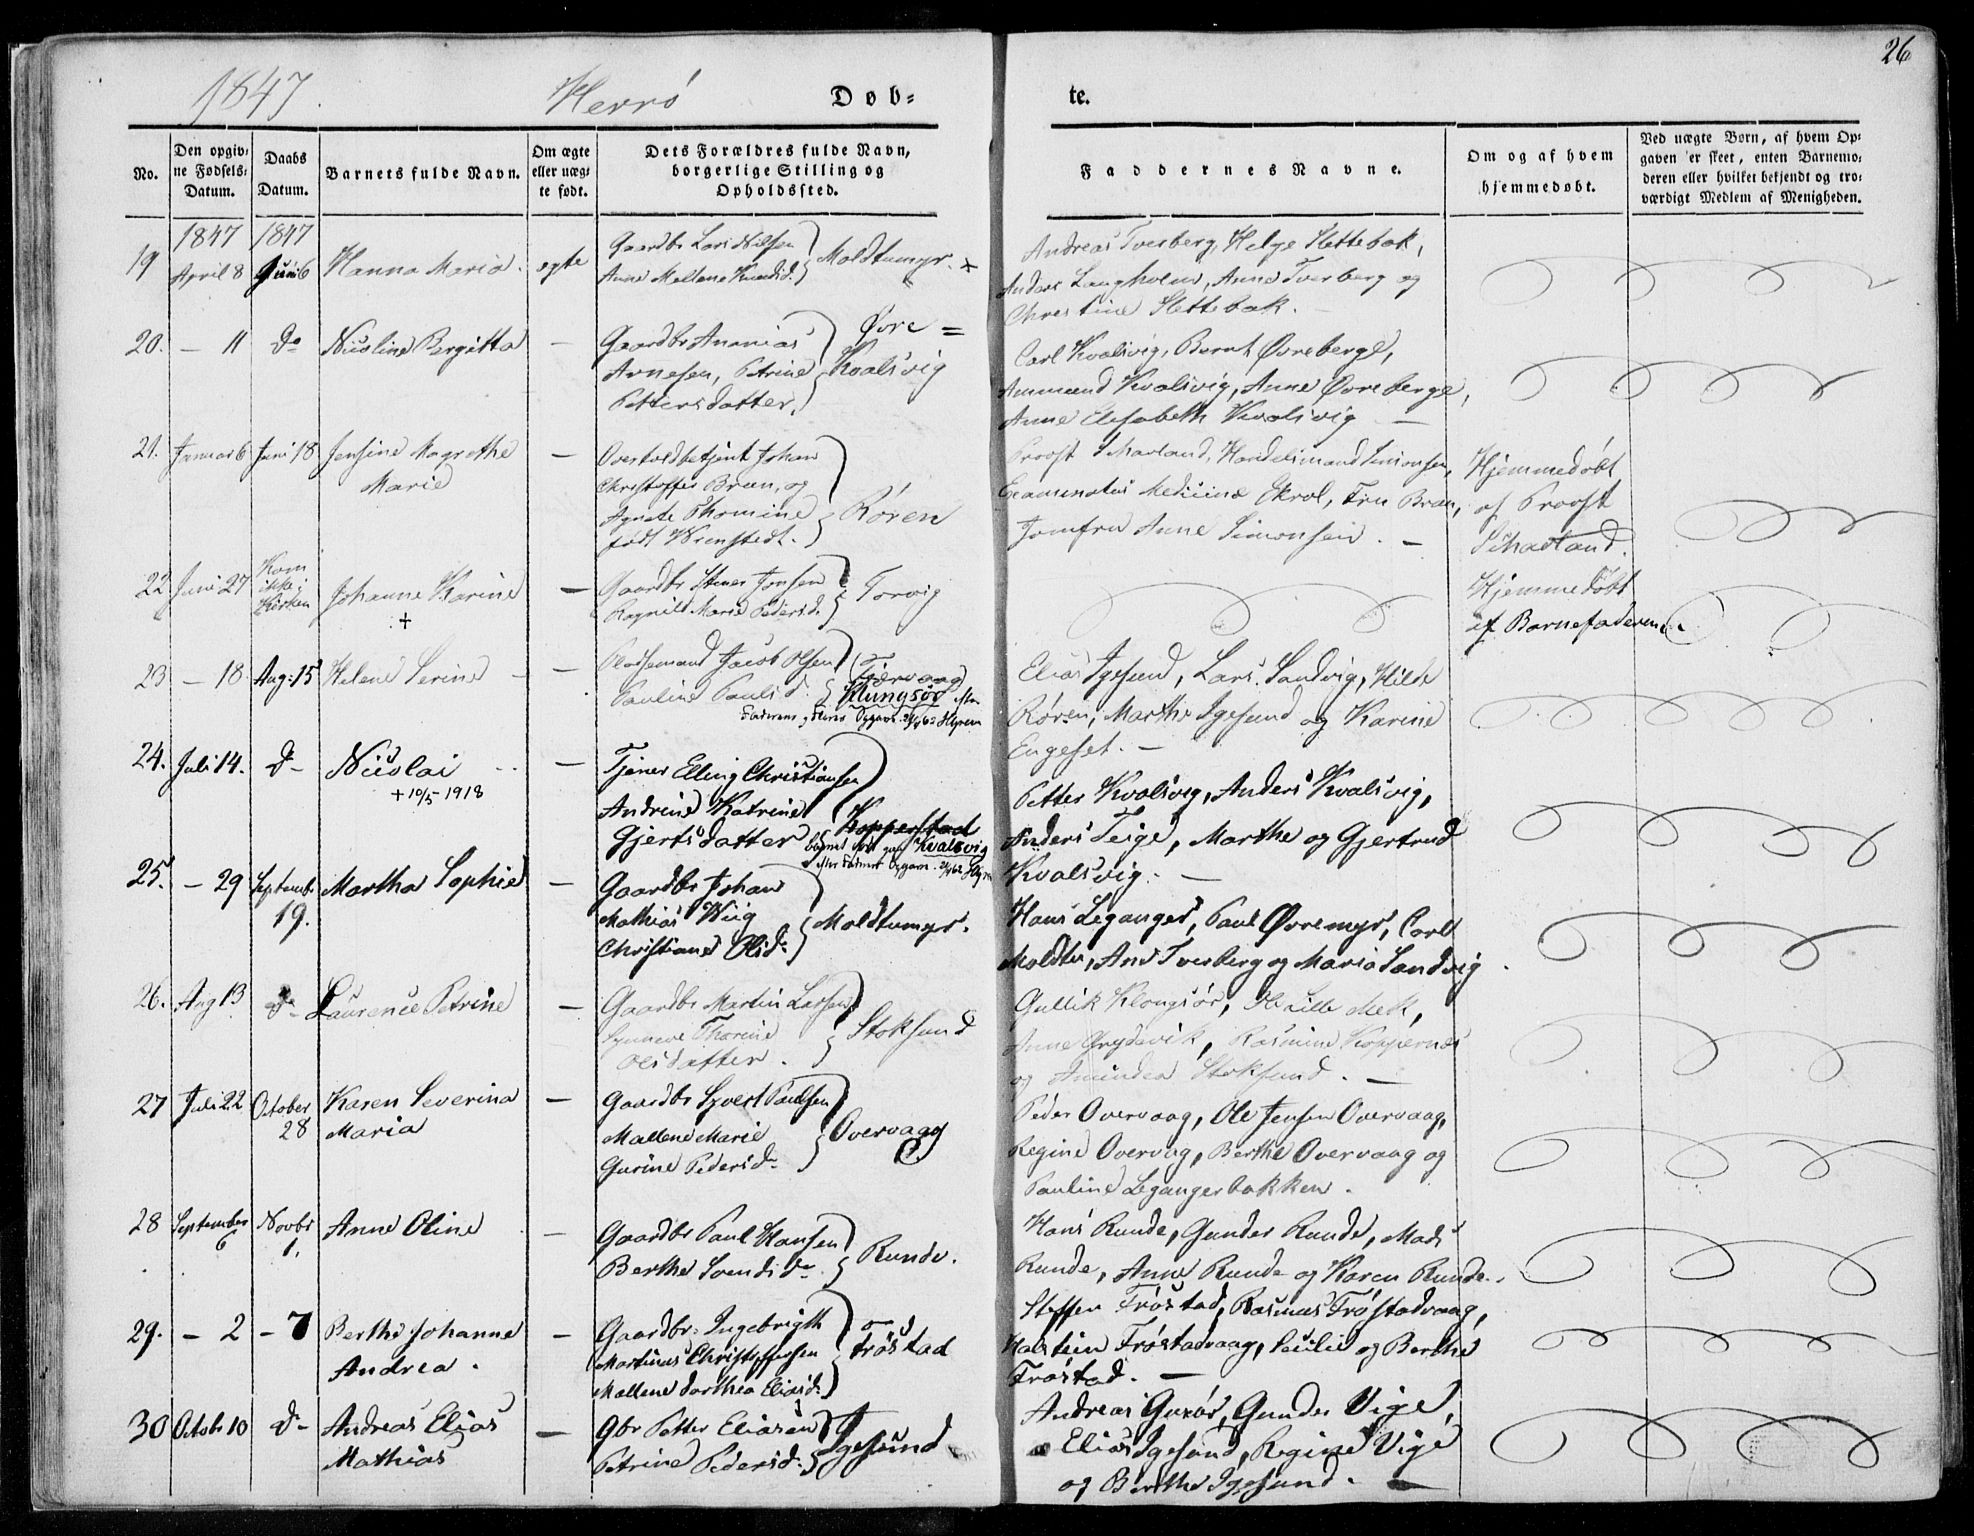 1847. Herrö Døb-
te. 26
No. Den opgiv-
ne Fødsels-
Datum. Daabs
Datum. Barnets fulde Navn. Om ægte
eller uæg-
te født. Dets Forældres fulde Navn,
borgerlige Stilling og
Opholdssted.
Faddernes Navne. Om og af hvem
hjemmedøbt. Ved uægte Børn, af hvem Op-
gaven er skeet, enten Barnemo-
deren eller hvilket bekjendt og tro-
værdigt Medlem af Menigheden.
1847 1847
19 April 8 Juni 6 Hanna Maria. egte Gaardbr Lars Nilsen
Anne Mallene Knudsd. Moldtumyr. +
Andreas Tverberg, Helge Slettebak,
Anders Langholm, Anne Tverberg og
Christine Slettebak.
20. — 11 do Nicoline Bergitta — Gaardbr Ananias
Arnesen, Petrine
Pettersdatter, Øvre =
Kvalsvig
Carl Kvalsvig, Bernt Øvreberge,
Ammund Kvalsvig, Anne Øvreberge,
Anne Elisabeth Kvalsvig —
21. Januar 6 Juni 18 Jensine Magrethe
Marie — Overtoldbetjent Johan
Christoffer Bran, og
Agnete Thomine
født Wienstedt. Røren
Provst Schavland, Handelsmand Simonsen,
Examinatus Medicinæ Skrol, Fru Bran,
Jomfru Anne Simonsen. —
Hjemmedøbt
af Provst
Schavland.
22 Juni 27 Kom
ikke i
Kirken Johanne Karine
+ — Gaardbr Stener Jensen
Ragnild Marie Pedersd. Torvig
Hjemmedøbt
af Barnefaderen.
23 — 18 Aug: 15 Helene Serine — Pladsemand Jacob Olsen
Pauline Paulsd. (Tjervaag)
Klungsör efter
Faderens og fleres Opgave 24/4 62
Elias Igesund, Lars Sandvig, Hilde
Røren, Marthe Igesund og Karine
Engeset. —
24. Juli 14. do Nicolai
+ 10/5 1918 — Tjener Elling Christiansen
Andrine Katrine
Gjertsdatter Kopperstad
Kvalsvig
efter Faderens Opgave 24/4 62
Petter Kvalsvig, Anders Kvalsvig,
Anders Teige, Marthe og Gjertrud
Kvalsvig. —
25. — 29 Septemb.
19. Martha Sophie — Gaardbr Johan
Mathias Wiig
Christiane Olsd. Moldtumyr.
Hans Leganger, Paul Øvremyr, Carl
Moldtu, Ane Tverberg og Maria Sandvig
26. Aug 13 do Laurence Petrine — Gaardbr Martin Larsen
Synneve Thorine
Olsdatter. Stoksund
Gullik Klongsør, Ole Lille Mek,
Anne Grydevik, Rasmine Koppernæs
og Aminda Stoksund. —
27 Juli 22 October
28 Karen Severina
Maria — Gaardbr Syvert Paulsen
Mallene Marie
Gurine Pedersd. Overvaag
Peder Overvaag, Ole Jensen Overvaag,
Regine Overvag, Berthe Overvaag og
Pauline Legangerbakken.
28 September
6 Novbr
1. Anne Oline — Gaardbr Paul Hansen
Berthe Svendsd. Runde.
Hans Runde, Gunder Runde, Mads
Runde, Anne Runde og Karen Runde.
29. — 2 — 7 Berthe Johanne
Andrea. — Gaardbr: Ingebrigth
Martinus Christoffersen
Mallene Dorthea Eliasd. Frøstad
Steffen Frøstad, Rasmus Frøstadvaag,
Halstein Frøstadvaag, Cecilie og Berthe
Frøstad. —
30 Octobr 10 do Andreas Elias
Mathias — Gbr Petter Eliasen
Petrine Pedersd. Igesund
Andreas Gurør, Gunder Vige,
Elias Igesund, Regine Vige
og Berthe Igesund. —